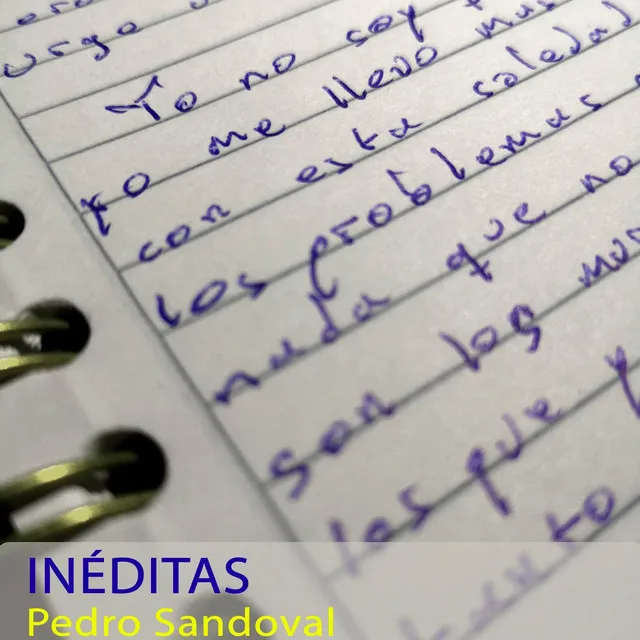 Yo no soy
yo me llevo muy
con esta soledad
los problemas
nada que no
son los
las que
INÉDITAS
Pedro Sandoval